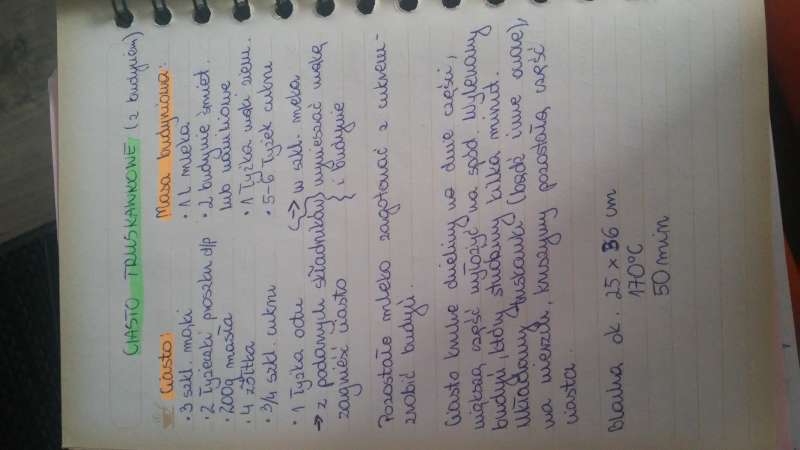 CIASTO TRUSKAWKOWE (z budyniem)
Ciasto:
• 3 szkl. mąki
• 2 łyżeczki proszku d/p
• 200g masła
• 4 żółtka
• 3/4 szkl. cukru
• 1 łyżka octu
→ z podanych składników
zagnieść ciasto
Masa budyniowa:
• 1 L mleka
• 2 budynie śmiet.
lub waniliowe
• 1 łyżka mąki ziem.
• 5-6 łyżek cukru
→ w szkl. mleka
wymieszać mąkę
i budynie
Pozostałe mleko zagotować z cukrem -
zrobić budyń.
Ciasto kruche dzielimy na dwie części,
większą część wyłożyć na spód. Wylewamy
budyń, który studzimy kilka minut.
Układamy truskawki (bądź inne owoce),
na wierzch, kruszymy pozostałą część
ciasta.
Blacha ok. 25 x 36 cm
170°C
50 min